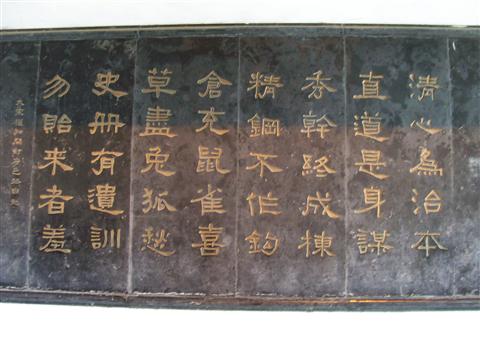 清心為治本
直道是身謀
秀幹終成棟
精鋼不作鈎
倉充鼠雀喜
草盡兔狐愁
史册有遺訓
勿貽來者羞